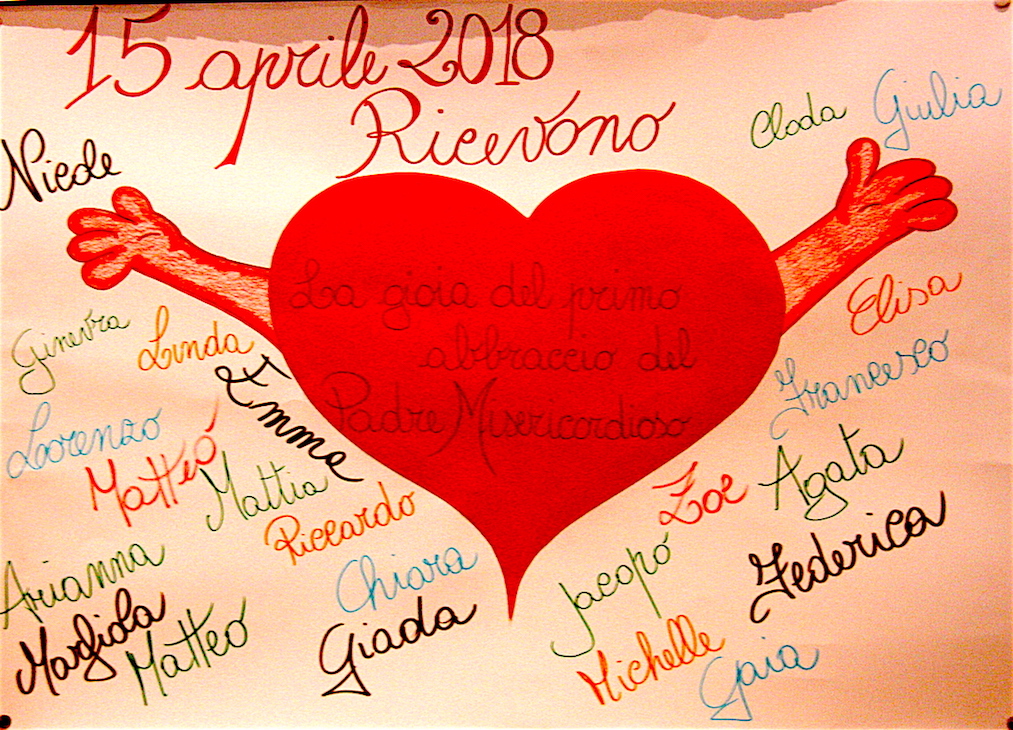 15 aprile 2018
Ricevono
Cloda Giulia
Nicole
La gioia del primo
abbraccio del
Padre Misericordioso
Ginevra Linda
Emma
Lorenzo
Matteo
Mattia
Riccardo
Arianna
Margiola
Matteo
Chiara
Giada
Elisa
Francesco
Zoe Agata
Jacopo
Federica
Michelle
Gaia